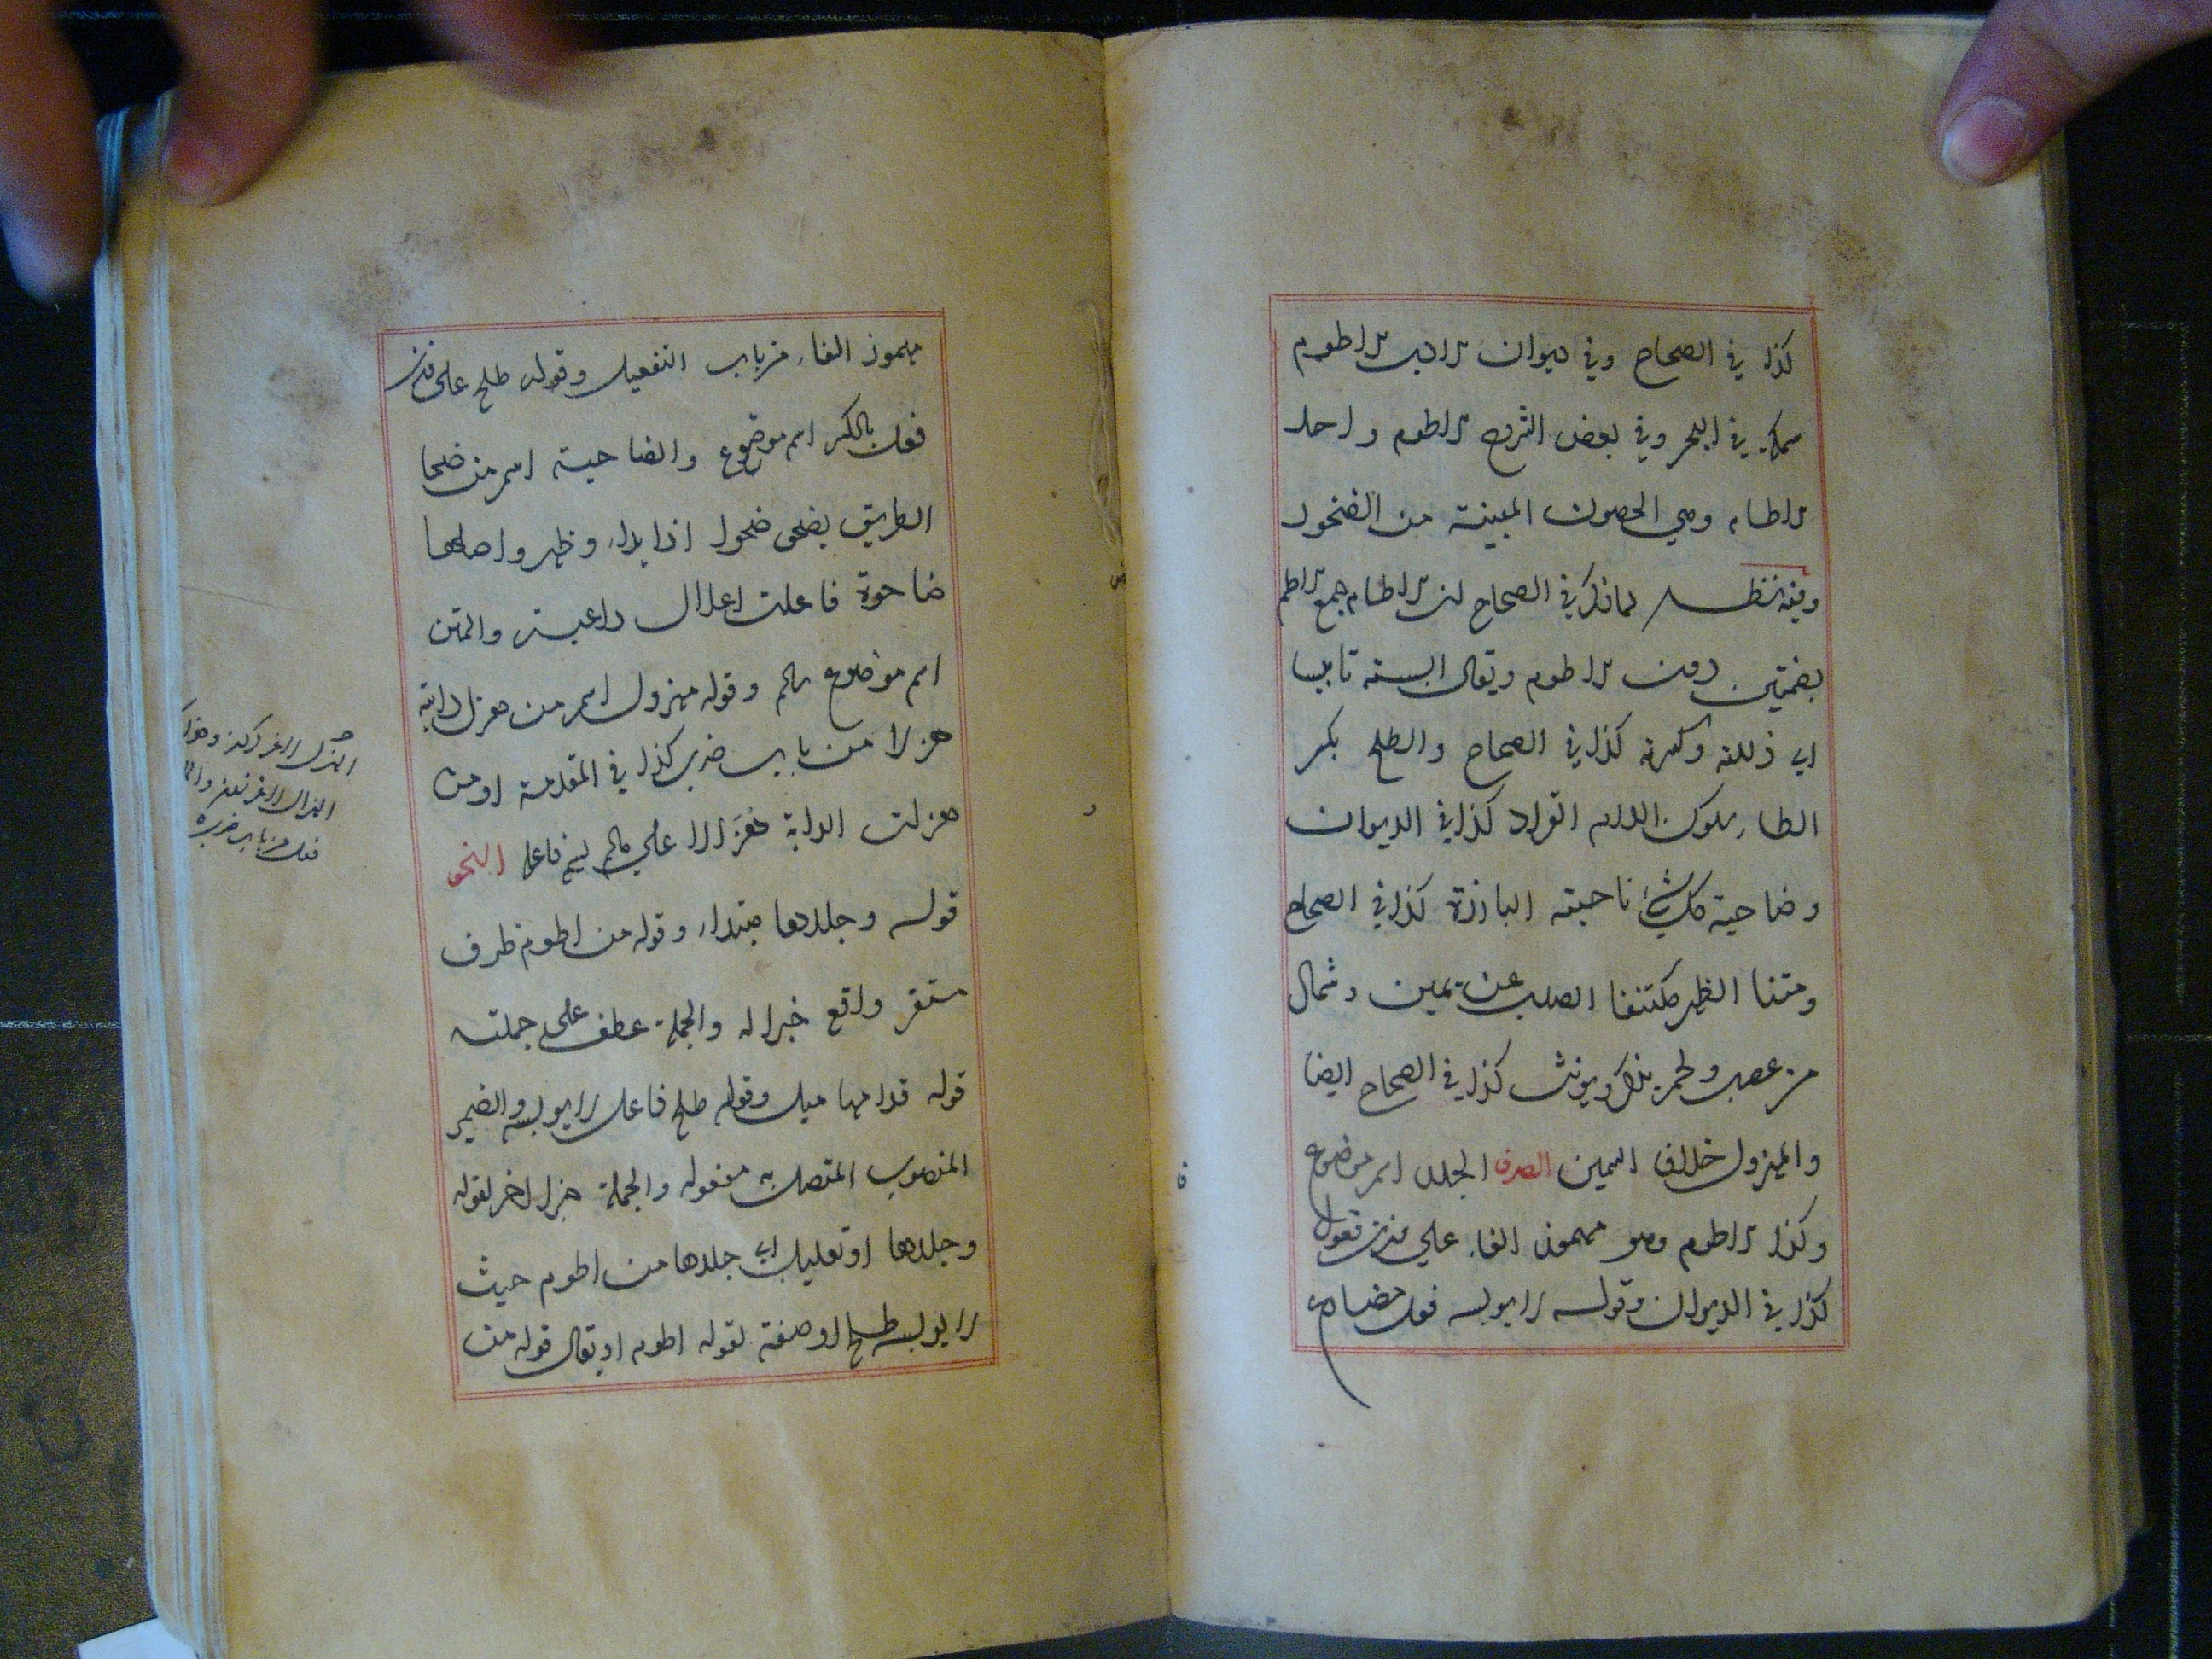 كذا في الصحاح وفي ديوان الادب الاطوم
سمكة في البحر وفي بعض الشروح الاطوم واحد
الاطام وهي الحصون المبنية من الصخور
وفيه نظر لما ذكر في الصحاح ان الاطام جمع الاطم
بضمتين دون الاطوم ويقال ايسته تاييسا
اي ذللته وكسرته كذا في الصحاح والطلح بكسر
الطاء وسكون اللام القراد كذا في الديوان
وضاحية كل شيء ناحيته البارزة كذا في الصحاح
ومتنا الظهر مكتنفا الصلب عن يمين وشمال
من عصب ولحم يذكر ويونث كذا في الصحاح ايضا
والمهزول خلاف السمين الصرف الجلد اسم موضوع
وكذا الاطوم وهو مهموز الفاء على وزن فعول
كذا في الديوان وقوله لا يويسه فعل مضارع
مهموز الفاء من باب التفعيل وقوله طلح على وزن
فعل بالكسر اسم موضوع والضاحية اسم من ضحا
الطريق يضحى ضحوا اذا بدا وظهر واصلها
ضاحوة فاعلت اعلال داعية والمتن
اسم موضوع سالم وقوله مهزول اسم من هزل دابته
هزلا من باب ضرب كذا في المقدمة او من
هزلت الدابة هزالا على ما لم يسم فاعله النحو
قوله وجلدها مبتداء وقوله من اطوم ظرف
مستقر واقع خبرا له والجملة عطف على جملة
قوله قدامها ميل وقوله طلح فاعل لا يويسه والضمير
المنصوب المتصل به مفعوله والجملة خبر اخر لقوله
وجلدها او تعليل اي جلدها من اطوم حيث
لا يويسه طلح او صفة لقوله اطوم او يقال قوله من